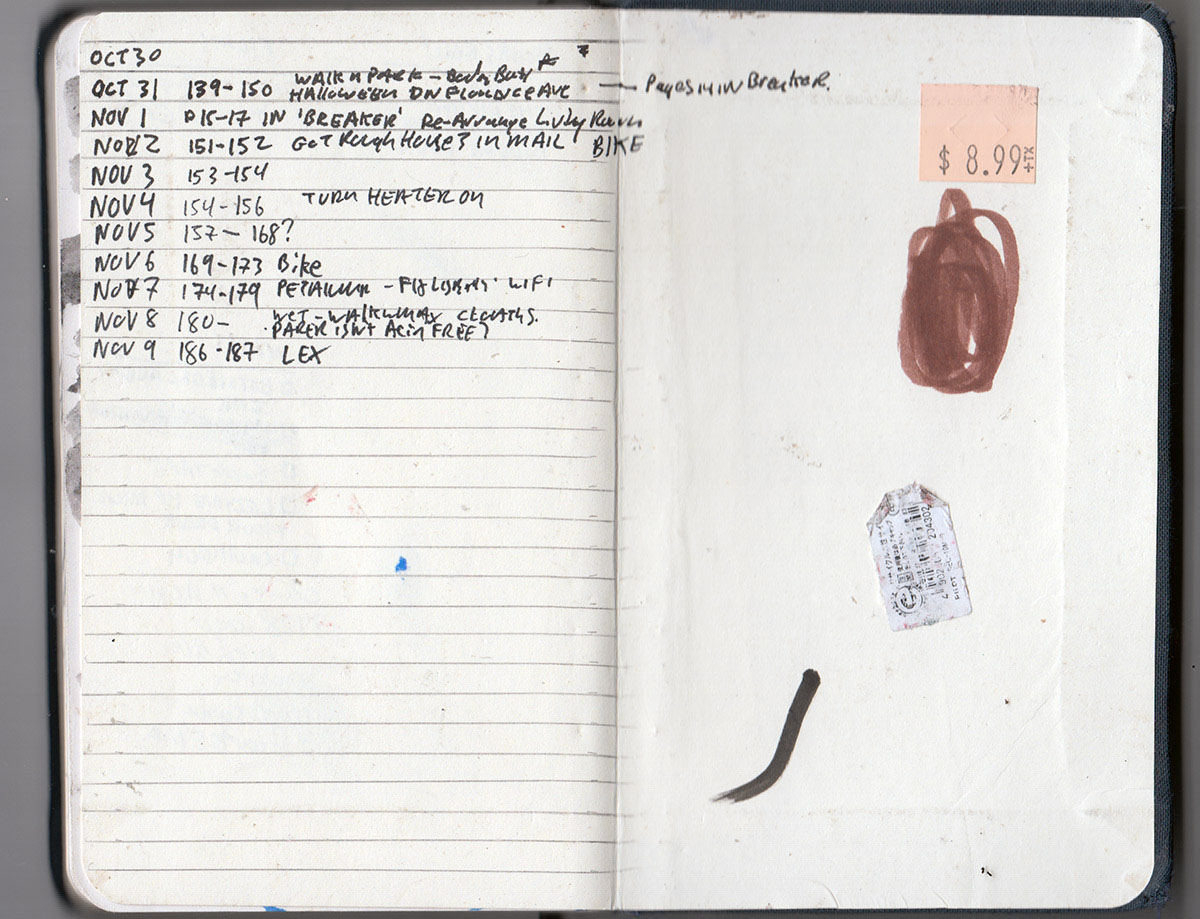 OCT 30
WALK N PARK -
OCT 31 139-150 HALLOWEEN ON FLORENCE AVE — Pages 14 IN Breaker.
NOV 1 P15-17 IN 'BREAKER' Re-Arrange Living Room
NOV 2 151-152 GOT Rough House 3 IN MAIL BIKE
NOV 3 153-154
NOV 4 154-156 TURN HEATER ON
NOV 5 157- 168?
NOV 6 169-173 Bike
NOV 7 174-179 PETALUMA - WIFI
NOV 8 180- WET-
PAPER ISNT ACID FREE?
NOV 9 186-187 LEX
$ 8.99 +TX
PILOT